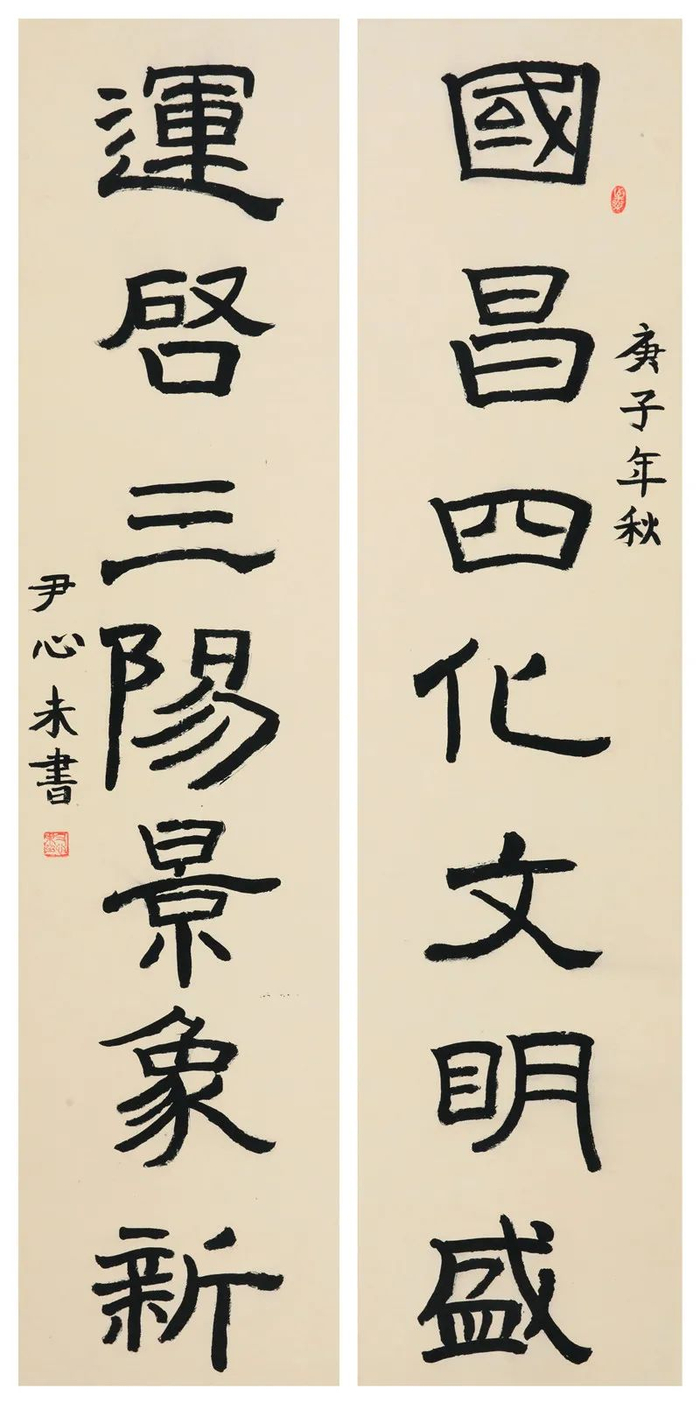 國昌四化文明盛
庚子年秋
運啓三陽景象新
尹心未書